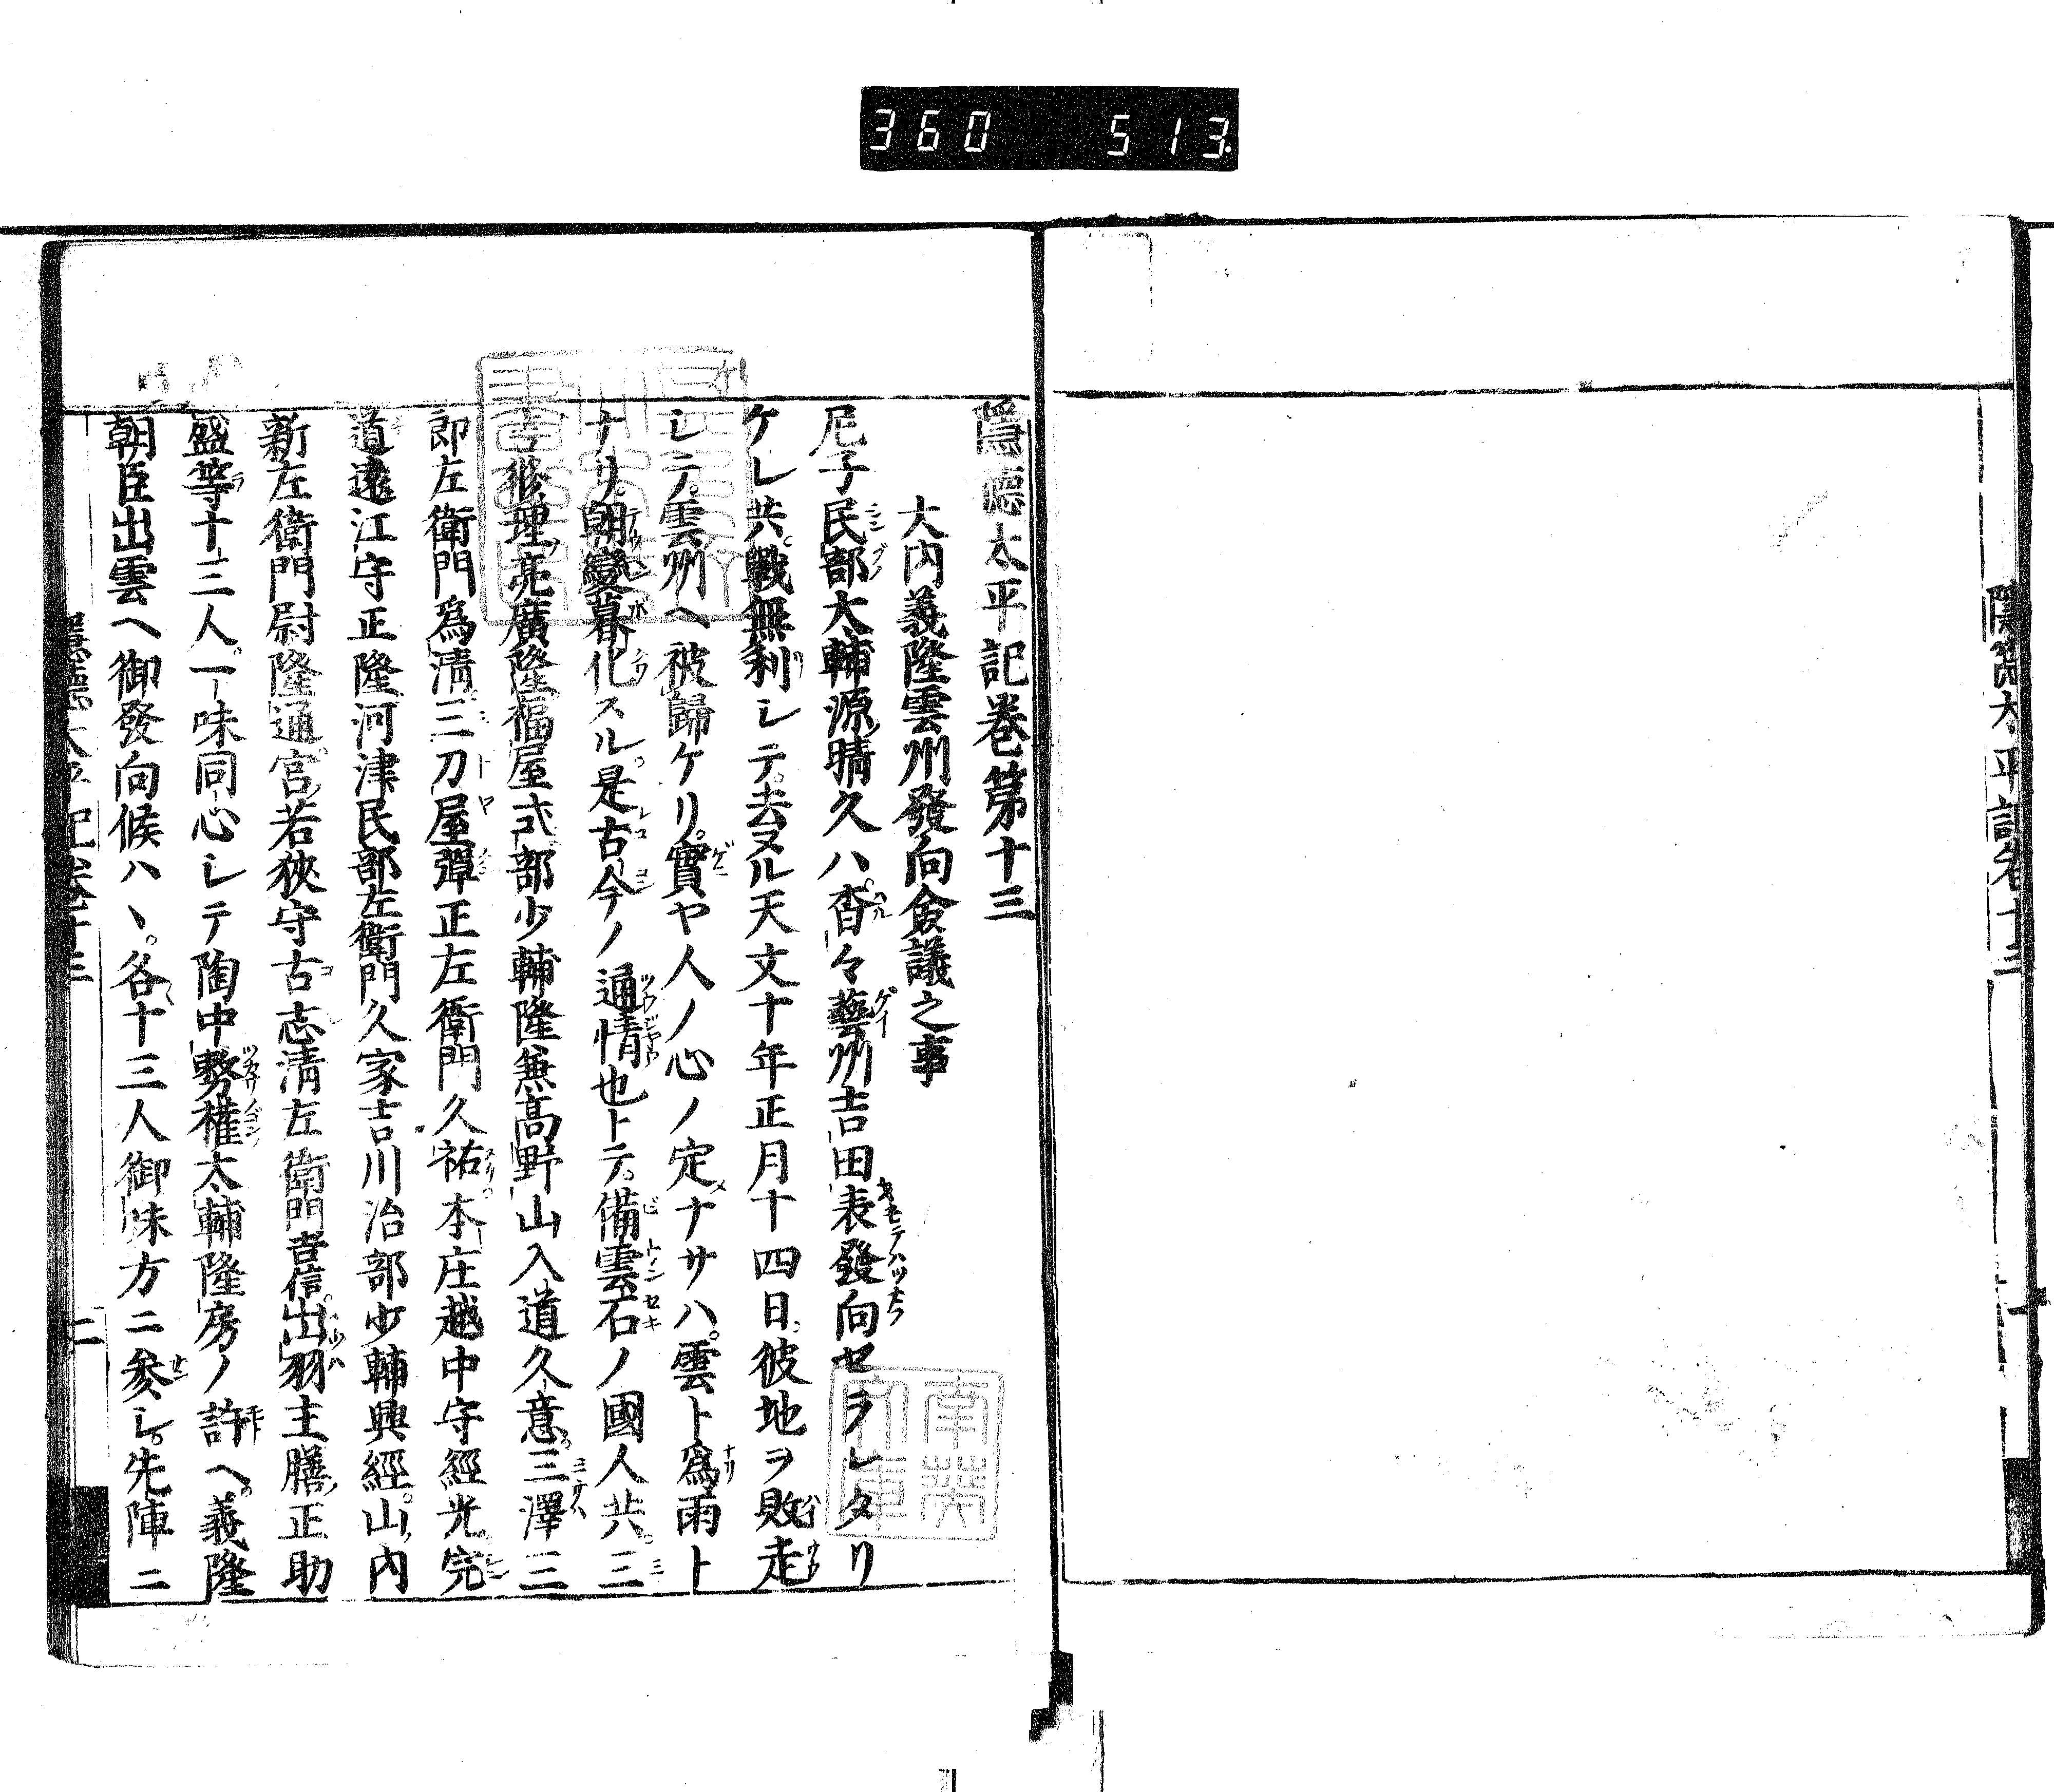 360 513
隱德太平記卷第十三
大内義隆雲州發向僉議之事
尼子民部大輔源晴久ハ沓々藝州吉田表發向セラレタリ
ケレ共。戰無利シテ。去ヌル天文十年正月十四日。彼地ヲ敗走
シテ。雲州ヘ被歸ケリ。實ヤ人ノ心ノ定ナサハ。雲ト爲雨ト
ナリ。朝變暮化スル。是古今ノ通情也トテ。備雲石ノ國人共。三
修理亮廣隆福屋式部少輔隆兼高野山入道久意。三澤三
郎左衛門爲清三刀屋彈正左衛門久祐本庄越中守經光完
道遠江守正隆河津民部左衛門久家吉川治部少輔興經。山内
新左衛門尉隆通宮若狹守古志清左衛門吉信。出羽主膳正助
盛等十三人。一味同心シテ陶中務權太輔隆房ノ許ヘ。義隆
朝臣出雲ヘ御發向候ハヽ。各十三人御味方ニ參シ。先陣ニ
隱德太平記卷十三 二